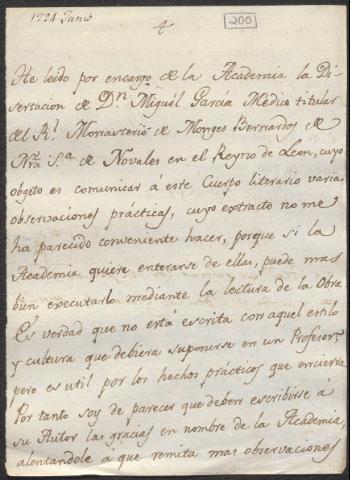 1794 Junio
200
He leido por encargo de la Academia la Di-
sertacion de Dⁿ. Miguél García Médico titular
del Rˡ. Monasterio de Monges Bernardos de
Nrã. Sª. de Novales en el Reyno de Leon, cuyo
objeto es comunicar á este Cuerpo literario varias
observaciones prácticas, cuyo extracto no me
ha parecido conveniente hacer, porque si la
Academia quiere enterarse de ellas, puede mas
bien executarlo mediante la lectura de la Obra
Es verdad que no está escrita con aquel estilo
y cultura que debiera suponerse en un Profesor,
pero es util por los hechos prácticos que encierra
Por tanto soy de parecer que deben escribirse á
su Autor las grácias en nombre de la Academia,
alentandole á que remita mas observaciones